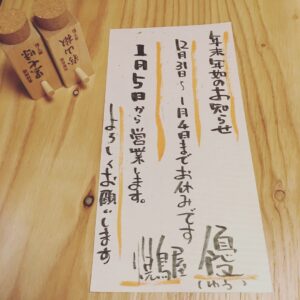 年末年始のお知らせ
12月31日～1月4日までお休みです
1月5日から営業します。
よろしくお願いします
優